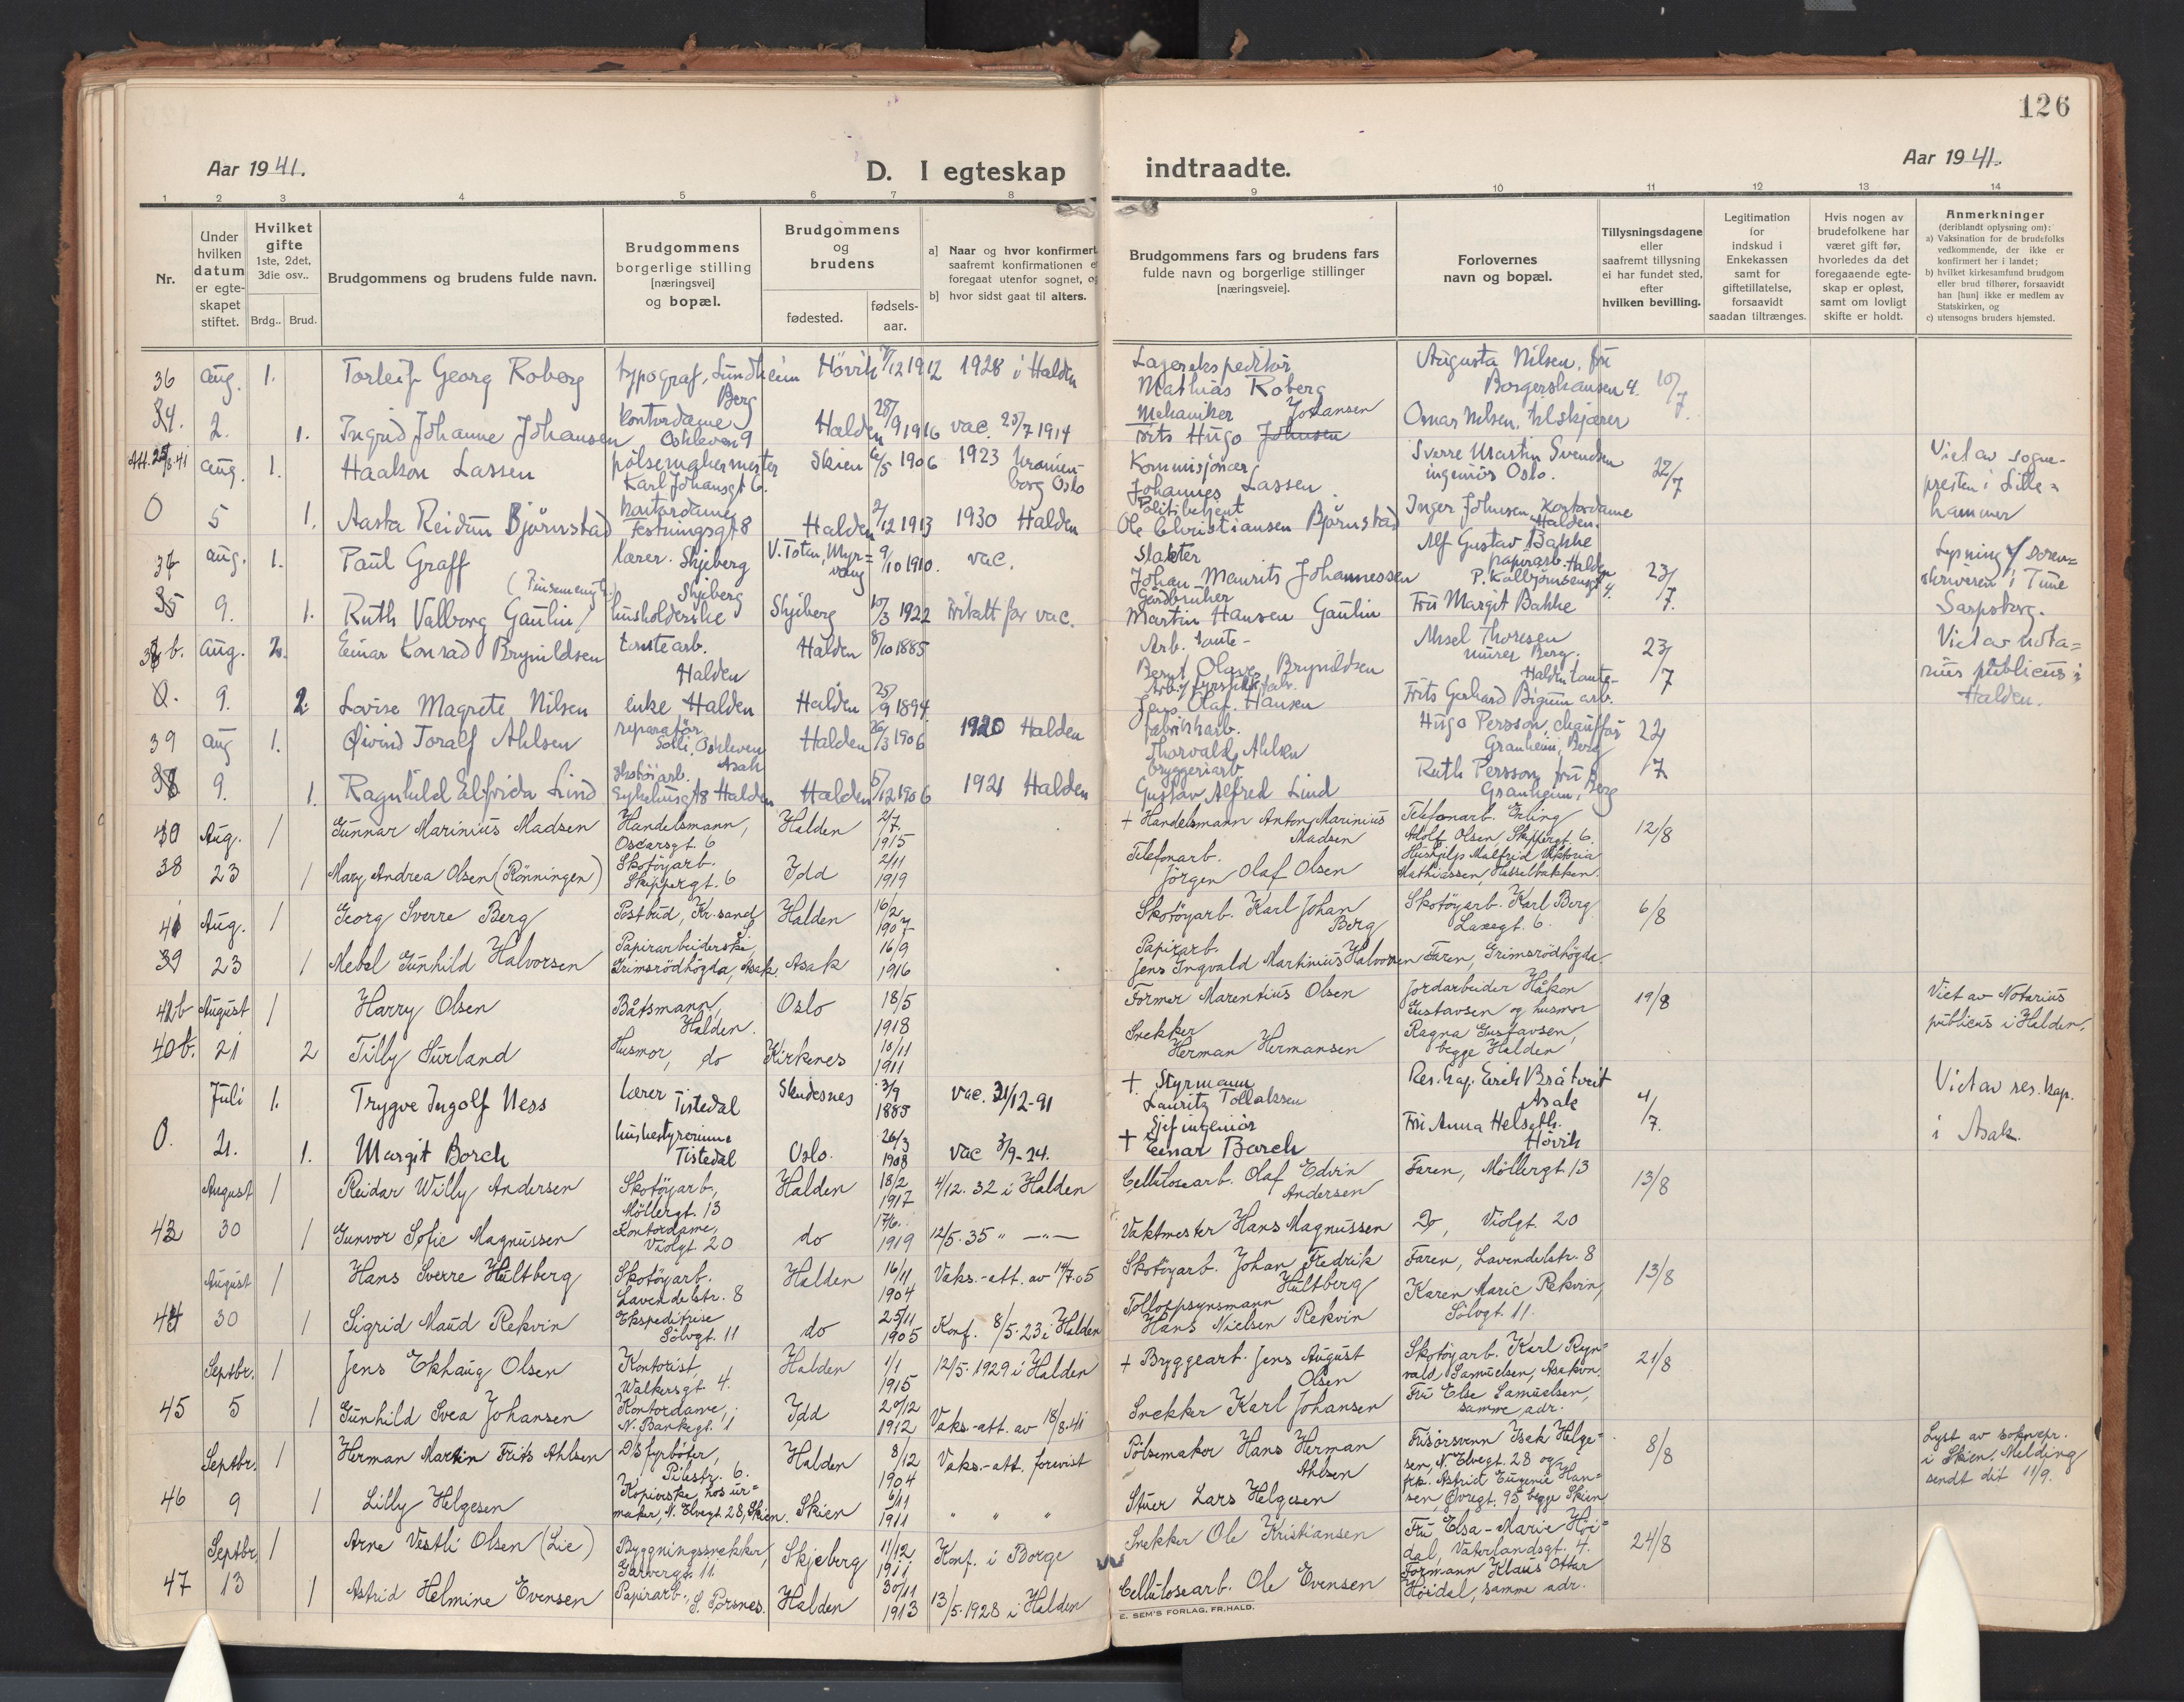 126
Aar 1941.
D. I egteskap indtraadte.
Aar 1941.
1 2 3 4 5 6 7 8 9 10 11 12 13 14
Nr.
Under hvilken datum er egteskapet stiftet.
Hvilket gifte 1ste, 2det, 3die osv..
Brdg.. Brud.
Brudgommens og brudens fulde navn.
Brudgommens borgerlige stilling [næringsvei] og bopæl.
Brudgommens og brudens
fødested.
fødsels-aar.
a) Naar og hvor konfirmert saafremt konfirmationen e foregaat utenfor sognet, og
b) hvor sidst gaat til alters.
Brudgommens fars og brudens fars fulde navn og borgerlige stillinger [næringsveie].
Forlovernes navn og bopæl.
Tillysningsdagene eller saafremt tillysning ei har fundet sted, efter hvilken bevilling.
Legitimation for indskud i Enkekassen samt for giftetillatelse, forsaavidt saadan tiltrænges.
Hvis nogen av brudefolkene har været gift før, hvorledes da det foregaaende egteskap er opløst, samt om lovligt skifte er holdt.
Anmerkninger (deriblandt oplysning om):
a) Vaksination for de brudefolks vedkommende, der ikke er konfirmert her i landet;
b) hvilket kirkesamfund brudgom eller brud tilhører, forsaavidt han [hun] ikke er medlem av Statskirken, og
c) utensogns bruders hjemsted.
36 Aug. 1. Torleif Georg Roberg typograf, Sundheim Berg Hövik 7/12 1912 1928 i Halden Lagerekspeditör Mathias Roberg Augusta Nilsen, fru Borgershausen 4. 10/7
34. 2. 1. Ingrid Johanne Johansen Kontordame Oskleven 9 Halden 28/9 1916 vac. 25/7 1914 Mekaniker Johansen Frits Hugo Johnsen Omar Nilsen, tilskjærer
Att. 25/8 41 Aug. 1. Haakon Lassen pölsemakermester Karl Johansgt 6. Skien 6/5 1906 1923 Uranienborg Oslo Kommisjonær Johannes Lassen Sverre Martin Svendsen ingeniör Oslo. 12/7 Viet av sognepresten i Lillehammer
0 5 1. Aasta Reidun Björnstad kontordame Festningsgt 8 Halden 2/12 1913 1930 Halden Politibetjent Ole Christiansen Björnstad Inger Johnsen, Kontordame Halden.
37 Aug. 1. Paul Graff lærer. Skjeberg V. Toten, 9/10 1910. vac. Slakter Johan Maurits Johannessen Alf Gustav Bakke papirarb. Halden 23/7. Lysning v/ Sorenskriveren i Tune Sarpsborg.
35 9. 1. Ruth Valborg Gaulin Skjeberg husholderske Skjeberg 10/3 1922 fritatt for vac. Gårdbruker Martin Hansen Gaulin Fru Margit Bakke
38 b. Aug. 2. Einar Konrad Brynildsen tomtearb. Halden Halden 8/10 1885 Arb. tomte- Bernt Olave Brynildsen Aksel Thoresen murer Berg. 23/7 Viet av notarius publicus i Halden.
0. 9. 2. Lovise Magrete Nilsen enke Halden Halden 25/9 1894. Lars Olaf Hansen Halden tomte- Frits Gerhard Bigum arb.
39 Aug 1. Øivind Toralf Ahlsen reparatör Solli, Oskleven Asak Halden 26/3 1906 1920 Halden fabrikkarb. Thorvald Ahlsen Hugo Persson, chauffør Granheim, Berg 22/7
38 9. 1. Ragnhild Elfrida Lind skotöiarb. Sykehusgt 8 Halden Halden 5/12 1906 1921 Halden bryggeriarb Gustav Alfred Lind Ruth Persson, fru Granheim, Berg
40 Aug. 1 Gunnar Marinius Madsen Handelsmann, Oscarsgt. 6 Halden 2/7 1915 + Handelsmann Anton Marinius Madsen Telefonarb. Erling Adolf Olsen, Skippergt. 6. 12/8
38 23 1 Mary Andrea Olsen (Rönningen) Skotöyarb. Skippergt. 6 Idd 2/11 1919 Telefonarb. Jörgen Olaf Olsen Hushjelp Malfrid Viktoria Mathiassen, Hasselbakken.
41 Aug. 1 Georg Sverre Berg Postbud, Kr.sand S. Halden 16/2 1907 Skotöyarb. Karl Johan Berg Skotöyarb. Karl Berg Laxegt. 6. 6/8
39 23 1 Mebel Gunhild Halvorsen Papirarbeiderske Grimsrödhögda, Asak. Asak 16/9 1916 Papirarb. Jens Ingvald Martinius Halvorsen Faren, Grimsrödhögda.
42 b August 1 Harry Olsen Båtsmann, Halden. Oslo 18/5 1918 Former Marentius Olsen Jordarbeider Håkon Gustavsen og husmor 19/8 Viet av Notarius publicus i Halden.
40 b. 21 2 Tilly Surland Husmor, do Kirkenes 10/11 1911 Snekker Herman Hermansen Ragna Gustavsen, begge Halden
Juli 1. Trygve Ingolf Ness lærer Tistedal Skudesnes 3/9 1885 vac. 31/12-91 + Styrmann Lauritz Tollaksen Res. kap. Erich Bråtveit Asak 4/7. Viet av res. kap. i Asak.
0. 21. 1. Margit Borch husbestyrerinne Tistedal Oslo. 26/3 1908 vac 3/9-24. + Sjefingeniör Einar Borch Fru Anna Helseth. Hövik
August 1 Reidar Willy Andersen Skotöyarb., Möllergt. 13 Halden 18/2 1917 4/12. 32 i Halden Cellulosearb. Olaf Edvin Andersen Faren, Möllergt. 13 13/8
43 30 1 Gunvor Sofie Magnussen Kontordame, Violgt. 20 do 17/6. 1919 12/5. 35 " —"— Vaktmester Hans Magnussen Do, Violgt. 20
August 1 Hans Sverre Hultberg Skotöyarb. Lavendelstr. 8 Halden 16/11 1904 Vaks.-att. av 14/7.05 Skotöyarb. Johan Fredrik Hultberg Faren, Lavendelstr. 8 13/8
44 30 1 Sigrid Maud Rekvin Ekspeditrise Sölvgt. 11 do 25/11 1905 Konf. 8/5. 23 i Halden Tolloppsynsmann Hans Nielsen Rekvin Karen Marie Rekvin, Sölvgt. 11.
Septbr. 1 Jens Ekhaug Olsen Kontorist, Walkersgt. 4. Halden 1/1 1915 12/5. 1929 i Halden + Bryggearb. Jens August Olsen Skotöyarb. Karl Reynvald Samuelsen, Asakvn. 21/8
45 5 1 Gunhild Svea Johansen Kontordame, N. Bankegt. 1 Idd 29/12 1912 Vaks.-att. av 18/8.41 Snekker Karl Johansen Fru Else Samuelsen, samme adr.
Septbr. 1 Herman Martin Frits Ahlsen D/S fyrböter, Pilestr. 6. Halden 8/12 1904 Vaks.-att. forevist Pölsemaker Hans Herman Ahlsen Frisörsvenn Isak Helgesen, N. Elvegt. 28 og 8/8 Lyst av soknepr. i Skien. Melding sendt dit 11/9.
46 9 1 Lilly Helgesen Kopierske hos urmaker, N. Elvegt. 28, Skien. Skien 6/11 1911 " " " Stuer Lars Helgesen frk. Astrid Eugenie Hansen, Øvregt. 95 begge Skien
Septbr. 1 Arne Vestli Olsen (Lie) Byggningssnekker, Garvergt. 11. Skjeberg 11/12 1911 Konf. i Borge Snekker Ole Kristiansen Fru Elsa-Marie Höidal, Vaterlandsgt. 4. 24/8
47 13 1 Astrid Helmine Evensen Papirarb., S. Porsnes. Halden 30/11 1913 13/5. 1928 i Halden Cellulosearb. Ole Evensen Formann Klaus Ottar Höidal, samme adr.
E. SEM'S FORLAG, FR.HALD.